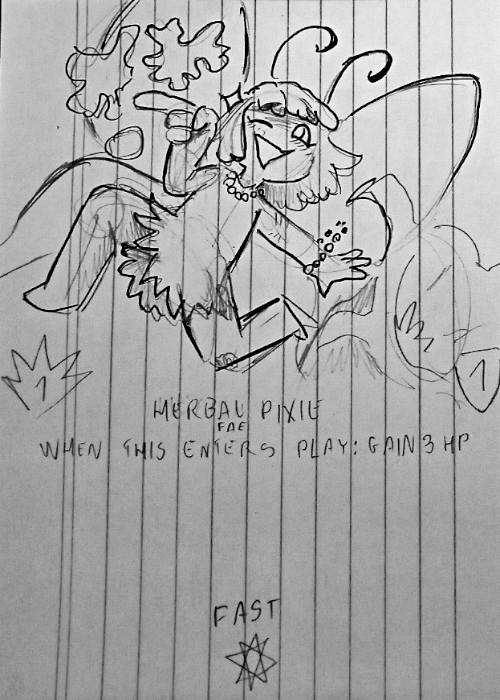 1 1
HERBAL PIXIE
FAE
WHEN THIS ENTERS PLAY: GAIN 3 HP
FAST